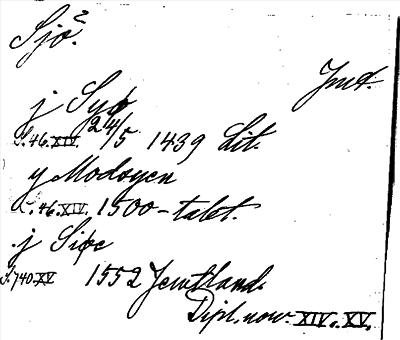 Sjö.²
Jmt.
j Syø
S. 46. XIV. 24/5 1439 Lit.
y Modoyen
S. 46. XIV. 1500-talet.
j Siøe
S. 740. XV 1552 Jemtland.
Dipl. norv. XIV. XV.